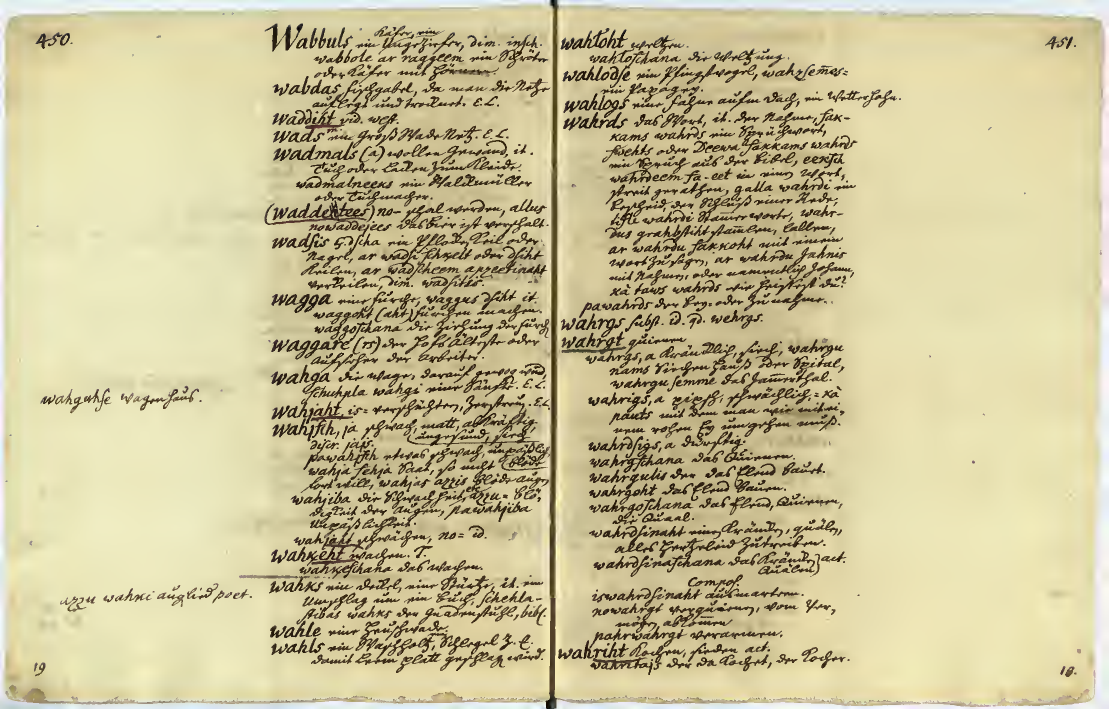 450.
Wabbuls ein Ungeziefer, dim. insch.
Käfer, ein
wabbole ar raggeem ein Schröter
oder Käfer mit Hörnern.
wabdas Fischgabel, da man die Netze
auflegt und trocknet. E.L.
waddiht vid. west.
wads ein groß Wade Netz. E.L.
wadmals (a) wollen Gewand, it.
Tuch oder Laken zum Kleide.
wadmalneeks ein Walckmüller
oder Tuchmacher.
(waddehtees) no- schal werden, allus
nowaddejees das Bier ist verschalt.
wadsis G. dscha ein Pflock, Keil oder
Nagel, ar wadsi schkelt oder dsiht
Keilen, ar wadscheem appeetinaht
verkeilen, dim. wadsitis.
wagga eine Furche, waggus dsiht it.
waggoht (aht) Furchen machen.
waggoschana die Ziehung der Furch
waggare (rs) der Hofs Älteste oder
Aufseher der Arbeiter.
wahga die Wage, darauf gewog wird,
schuhpla wahgi eine Sänfte. E.L.
wahguhse wagenhaus.
wahjaht is- verschüchtern, zerstreuen. E.L.
wahjsch, ja schwach, matt, unkräftig,
ungesund, siech
pawahjsch etwas schwach, unpäßlich
wahja sehja Saat, so nicht
fort will, wahjas azzis blöde Augen
wahjiba die Schwachheit, azzu- Blö-
digkeit der Augen, pawahjiba
Unpäßlichkeit.
wahjaht schwächen, no- id.
wahkeht wachen. T.
wahkeschana das wachen.
wahks ein Deckel, eine Stürtze, it. ein
azzu wahki auglied poet.
Umschlag um ein Buch, schehla-
stibas wahks der Gnadenstuhl, bibl.
wahle eine Heuschwade.
wahls ein Waschholtz, Schlegel z. E.
damit Leim platt geschlag wird.
19
451.
wahloht weltzen.
wahloschana die Weltzung.
wahlodse ein Pfingstvogel, wahzsemes-
ein Papagey.
wahlogs eine Fahne aufm Dach, ein Wetterhahn.
wahrds das Wort, it. der Nahme, sak-
kams wahrds ein Sprüchwort,
swehts oder Deewa sakkams wahrds
ein Spruch aus der Bibel, eeksch
wahrdeem sa-eet in einen Wort,
streit gerathen, galla wahrdi ein
Bescheid, der Schluß einer Rede,
wahrdi Stammworte, wahr-
dus grahbstiht stamlen, lallen,
ar wahrdu sakkoht mit einem
Wort zu sagen, ar wahrdu Jahnis
mit Nahmen, oder namentlich Johann,
kà taws wahrds wie heissest du?
pawahrds der Bey- oder Zunahme.
wahrgs subst. id. qd. wehrgs.
wahrgt quienen
wahrgs, a kräncklich, siech, wahrgu
nams Siechen Hauß oder Spital,
wahrgu semme das Jammerthal.
wahrigs, a piepsch, schwächlich, kà
pauts mit dem man wie mit ei-
nem rohen Ey umgehen muß.
wahrdsigs, a dürftig.
wahrgschana das Quienen.
wahrgulis der das Elend bauet.
wahrgoht das Elend bauen.
wahrgoschana das Elend, Quienen,
die Quaal.
wahrdsinaht einen kräncken, quälen,
alles Hertzeleid zutreiben.
wahrdsinaschana das Kräncken act.
Quälen
Compos.
iswahrdsinaht ausmartern.
nowahrgt verquienen, vom Ver,
mögen abkommen
pahrwahrgt verarmen.
wahriht Kochen, sieden act.
wahritais der da kochet, der Kocher.
18.